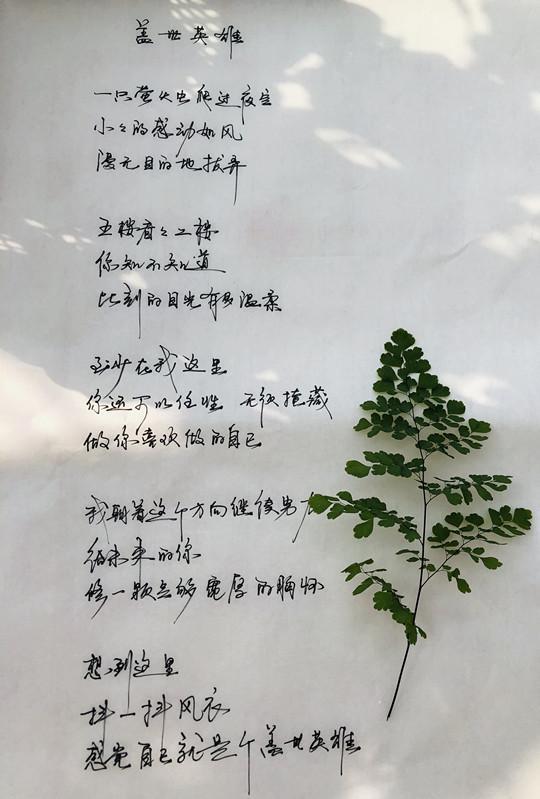 盖世英雄
一只萤火虫爬进夜空
小々的感动如风
漫无目的地拔弄
五楼看之二楼
你知不知道
此刻的目光有多温柔
至少在我这里
你还可以任性 无须掩藏
做你喜欢做的自己
我朝着这个方向继续努力
给未来的你
修一颗足够宽厚的胸怀
想到这里
抖一抖风衣
感觉自己就是个盖世英雄